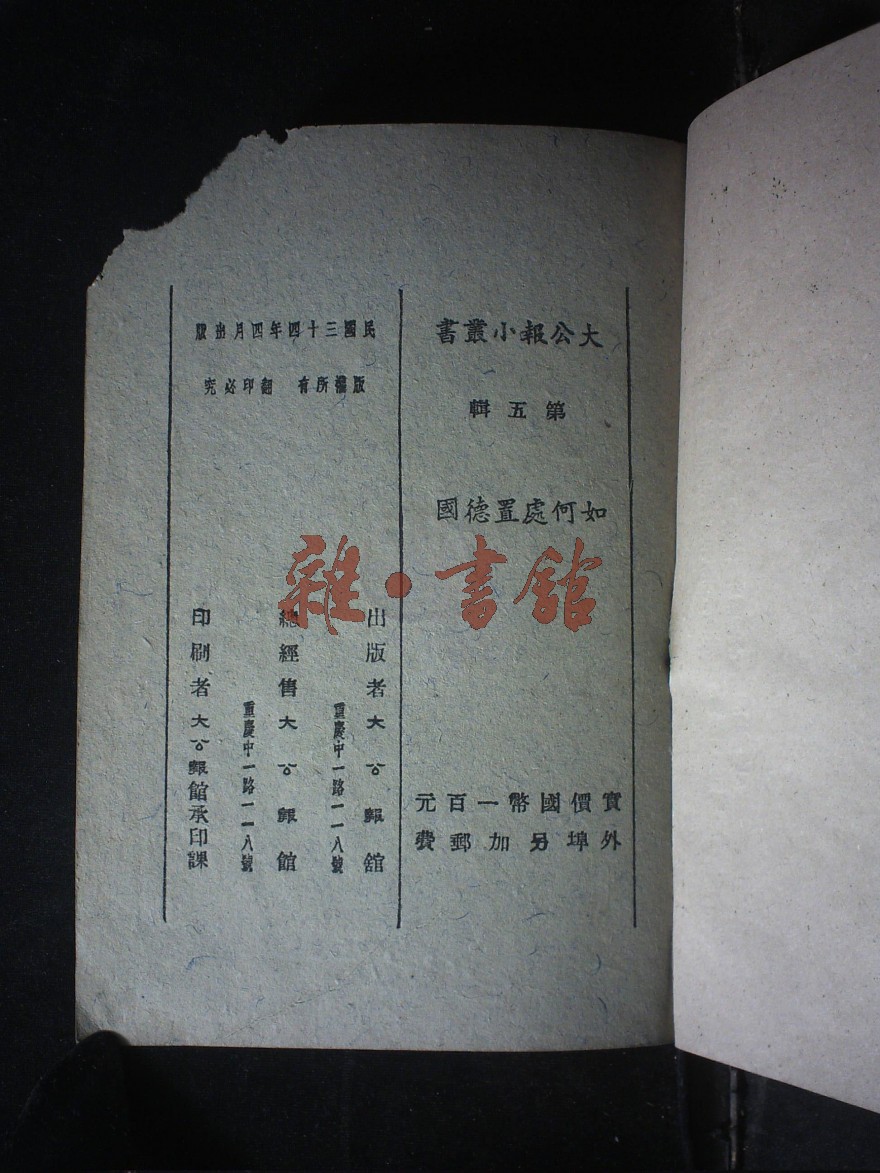 大公報小叢書
第五輯
如何處置德國
實價國幣一百元
外埠另加郵費
民國三十四年四月出版
版權所有 翻印必究
出版者 大公報館
重慶中一路一一八號
總經售 大公報館
重慶中一路一一八號
印刷者 大公報館承印課
雜·書館